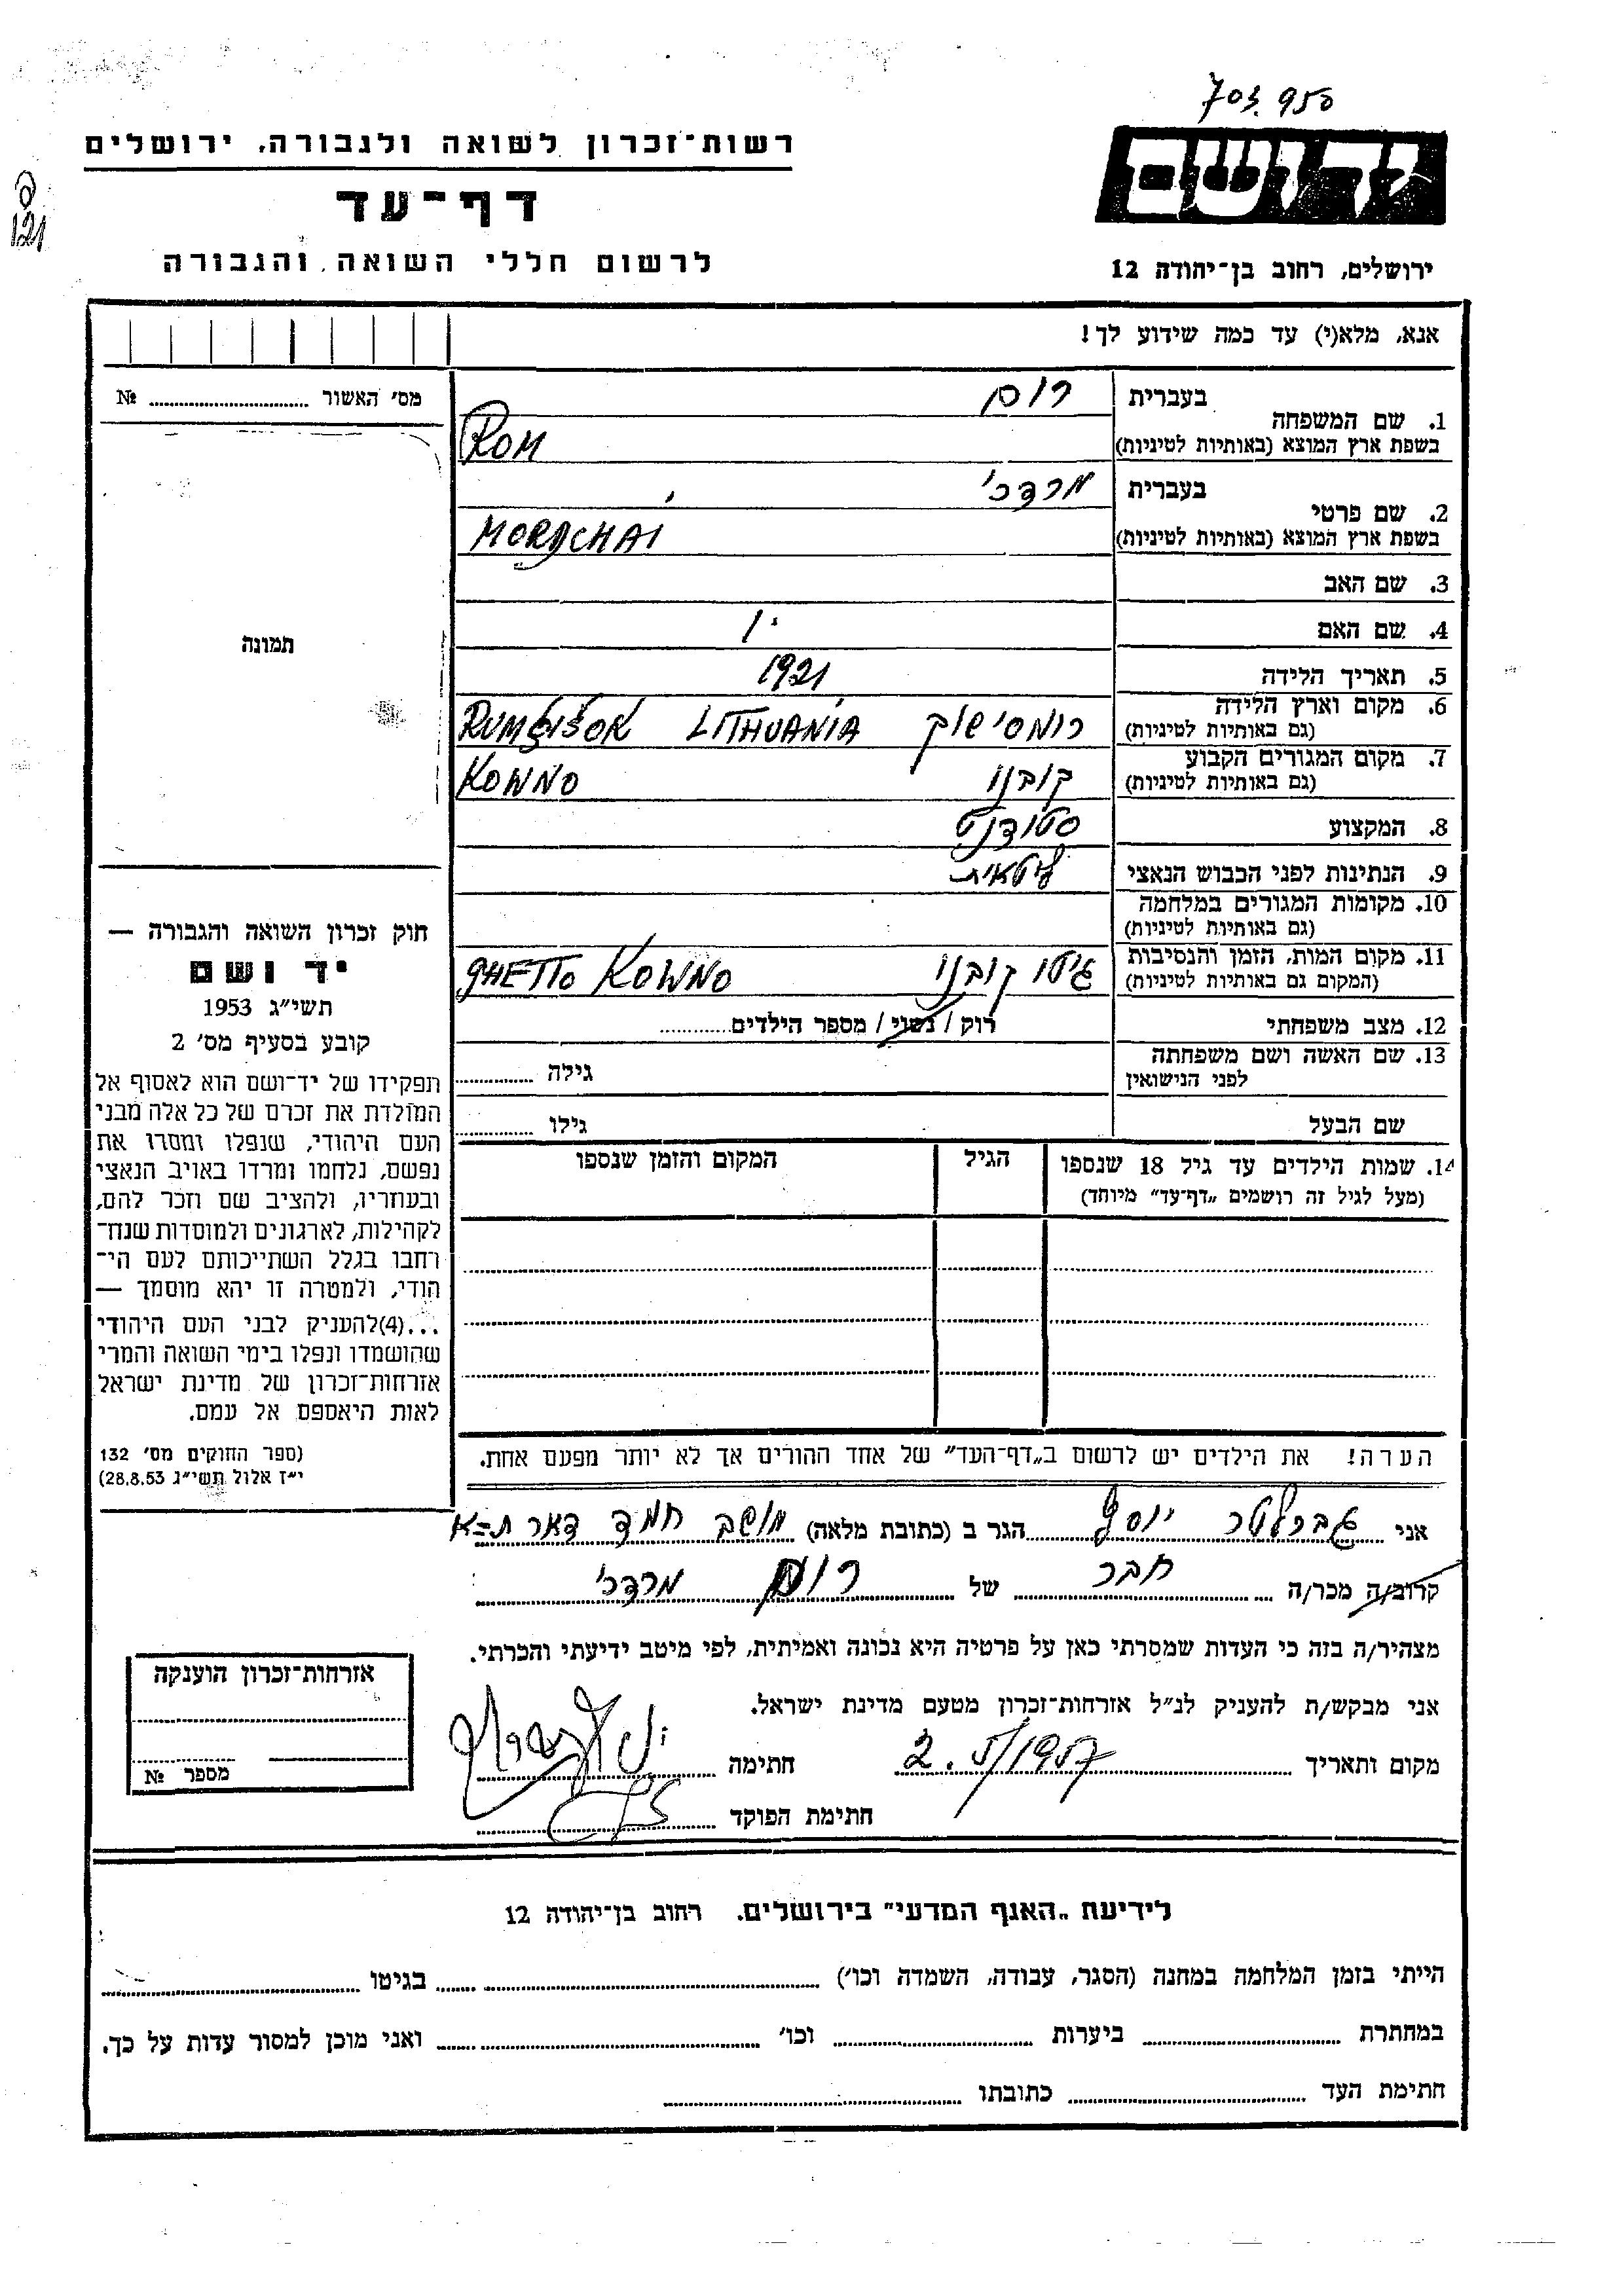 703.950
רשות־זכרון לשואה ולגבורה, ירושלים
יד ושם
דף־עד
121
לרשום חללי השואה והגבורה
ירושלים, רחוב בן־יהודה 12
אנא, מלא(י) עד כמה שידוע לך!
מס׳ האשור ........ №
תמונה
בעברית רום
1. שם המשפחה
בשפת ארץ המוצא (באותיות לטיניות) ROM
בעברית מרדכי
2. שם פרטי
בשפת ארץ המוצא (באותיות לטיניות) MORDCHAI
3. שם האב
4. שם האם
5. תאריך הלידה 1921
6. מקום וארץ הלידה רומסישוק LITHUANIA
(גם באותיות לטיניות)
7. מקום המגורים הקבוע קובנו KOWNO
(גם באותיות לטיניות)
8. המקצוע סטודנט
9. הנתינות לפני הכבוש הנאצי ליטאית
10. מקומות המגורים במלחמה
(גם באותיות לטיניות)
11. מקום המות, הזמן והנסיבות גיטו קובנו GHETTO KOWNO
(המקום גם באותיות לטיניות)
12. מצב משפחתי רוק / נשוי / מספר הילדים............
13. שם האשה ושם משפחתה
לפני הנישואין גילה ............
שם הבעל גילו ............
14. שמות הילדים עד גיל 18 שנספו הגיל המקום והזמן שנספו
(מעל לגיל זה רושמים „דף־עד״ מיוחד)
חוק זכרון השואה והגבורה —
יד ושם
תשי״ג 1953
קובע בסעיף מס׳ 2
תפקידו של יד־ושם הוא לאסוף אל
המולדת את זכרם של כל אלה מבני
העם היהודי, שנפלו ומסרו את
נפשם, נלחמו ומרדו באויב הנאצי
ובעוזריו, ולהציב שם וזכר להם,
לקהילות, לארגונים ולמוסדות שנח־
רחבו בגלל השתייכותם לעם הי־
הודי, ולמטרה זו יהא מוסמך —
...(4)להעניק לבני העם היהודי
שהושמדו ונפלו בימי השואה והמרי
אזרחות־זכרון של מדינת ישראל
לאות היאספם אל עמם.
(ספר החוקים מס׳ 132
י״ז אלול תשי״ג 28.8.53)
הערה! את הילדים יש לרשום ב„דף־העד״ של אחד ההורים אך לא יותר מפעם אחת.
אני יוסף הגר ב (כתובת מלאה) מושב חמד דאר ת=א
קרוב/ה מכר/ה חבר של רום מרדכי
מצהיר/ה בזה כי העדות שמסרתי כאן על פרטיה היא נכונה ואמיתית, לפי מיטב ידיעתי והכרתי.
אני מבקש/ת להעניק לנ״ל אזרחות־זכרון מטעם מדינת ישראל.
מקום ותאריך 2.5/1957 חתימה
חתימת הפוקד
אזרחות־זכרון הוענקה
מספר №
לידיעת „האגף המדעי״ בירושלים, רחוב בן־יהודה 12
הייתי בזמן המלחמה במחנה (הסגר, עבודה, השמדה וכו׳) ............ בגיטו ............
במחתרת ............ ביערות ............ וכו׳ ............ ואני מוכן למסור עדות על כך.
חתימת העד ............ כתובתו ............